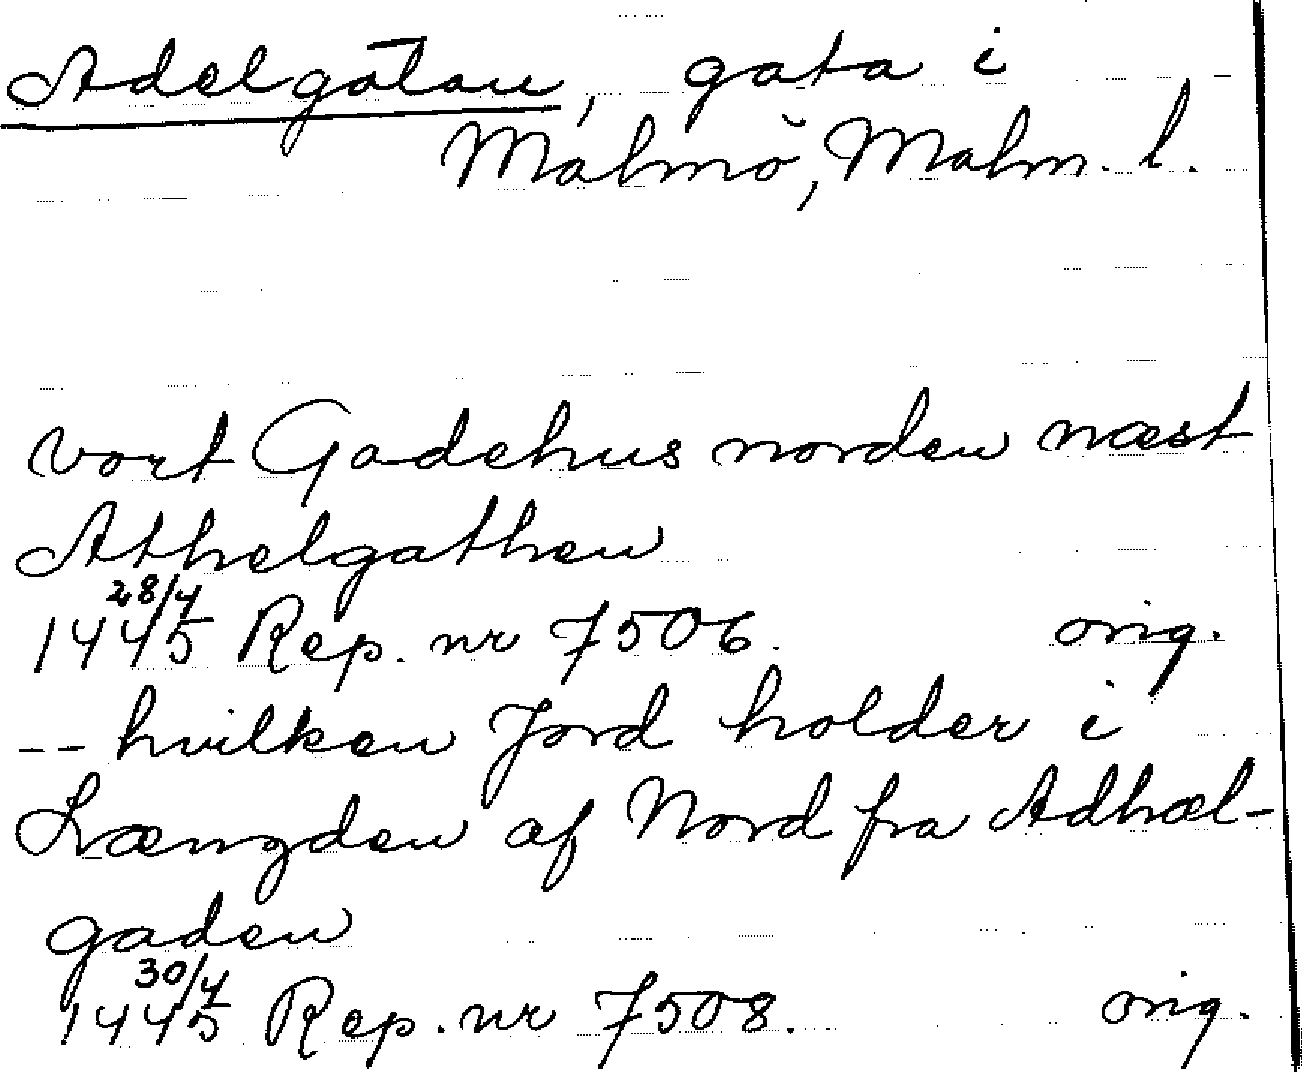 Adelgatan, gata i
Malmö, Malm. l.
vort Gadehus norden næst
Athelgathen
28/4
1445 Rep. nr 7506. orig.
-- hvilken Jord holder i
Længden af Nord fra Adhæl-
gaden
30/4
1445 Rep. nr 7508. orig.